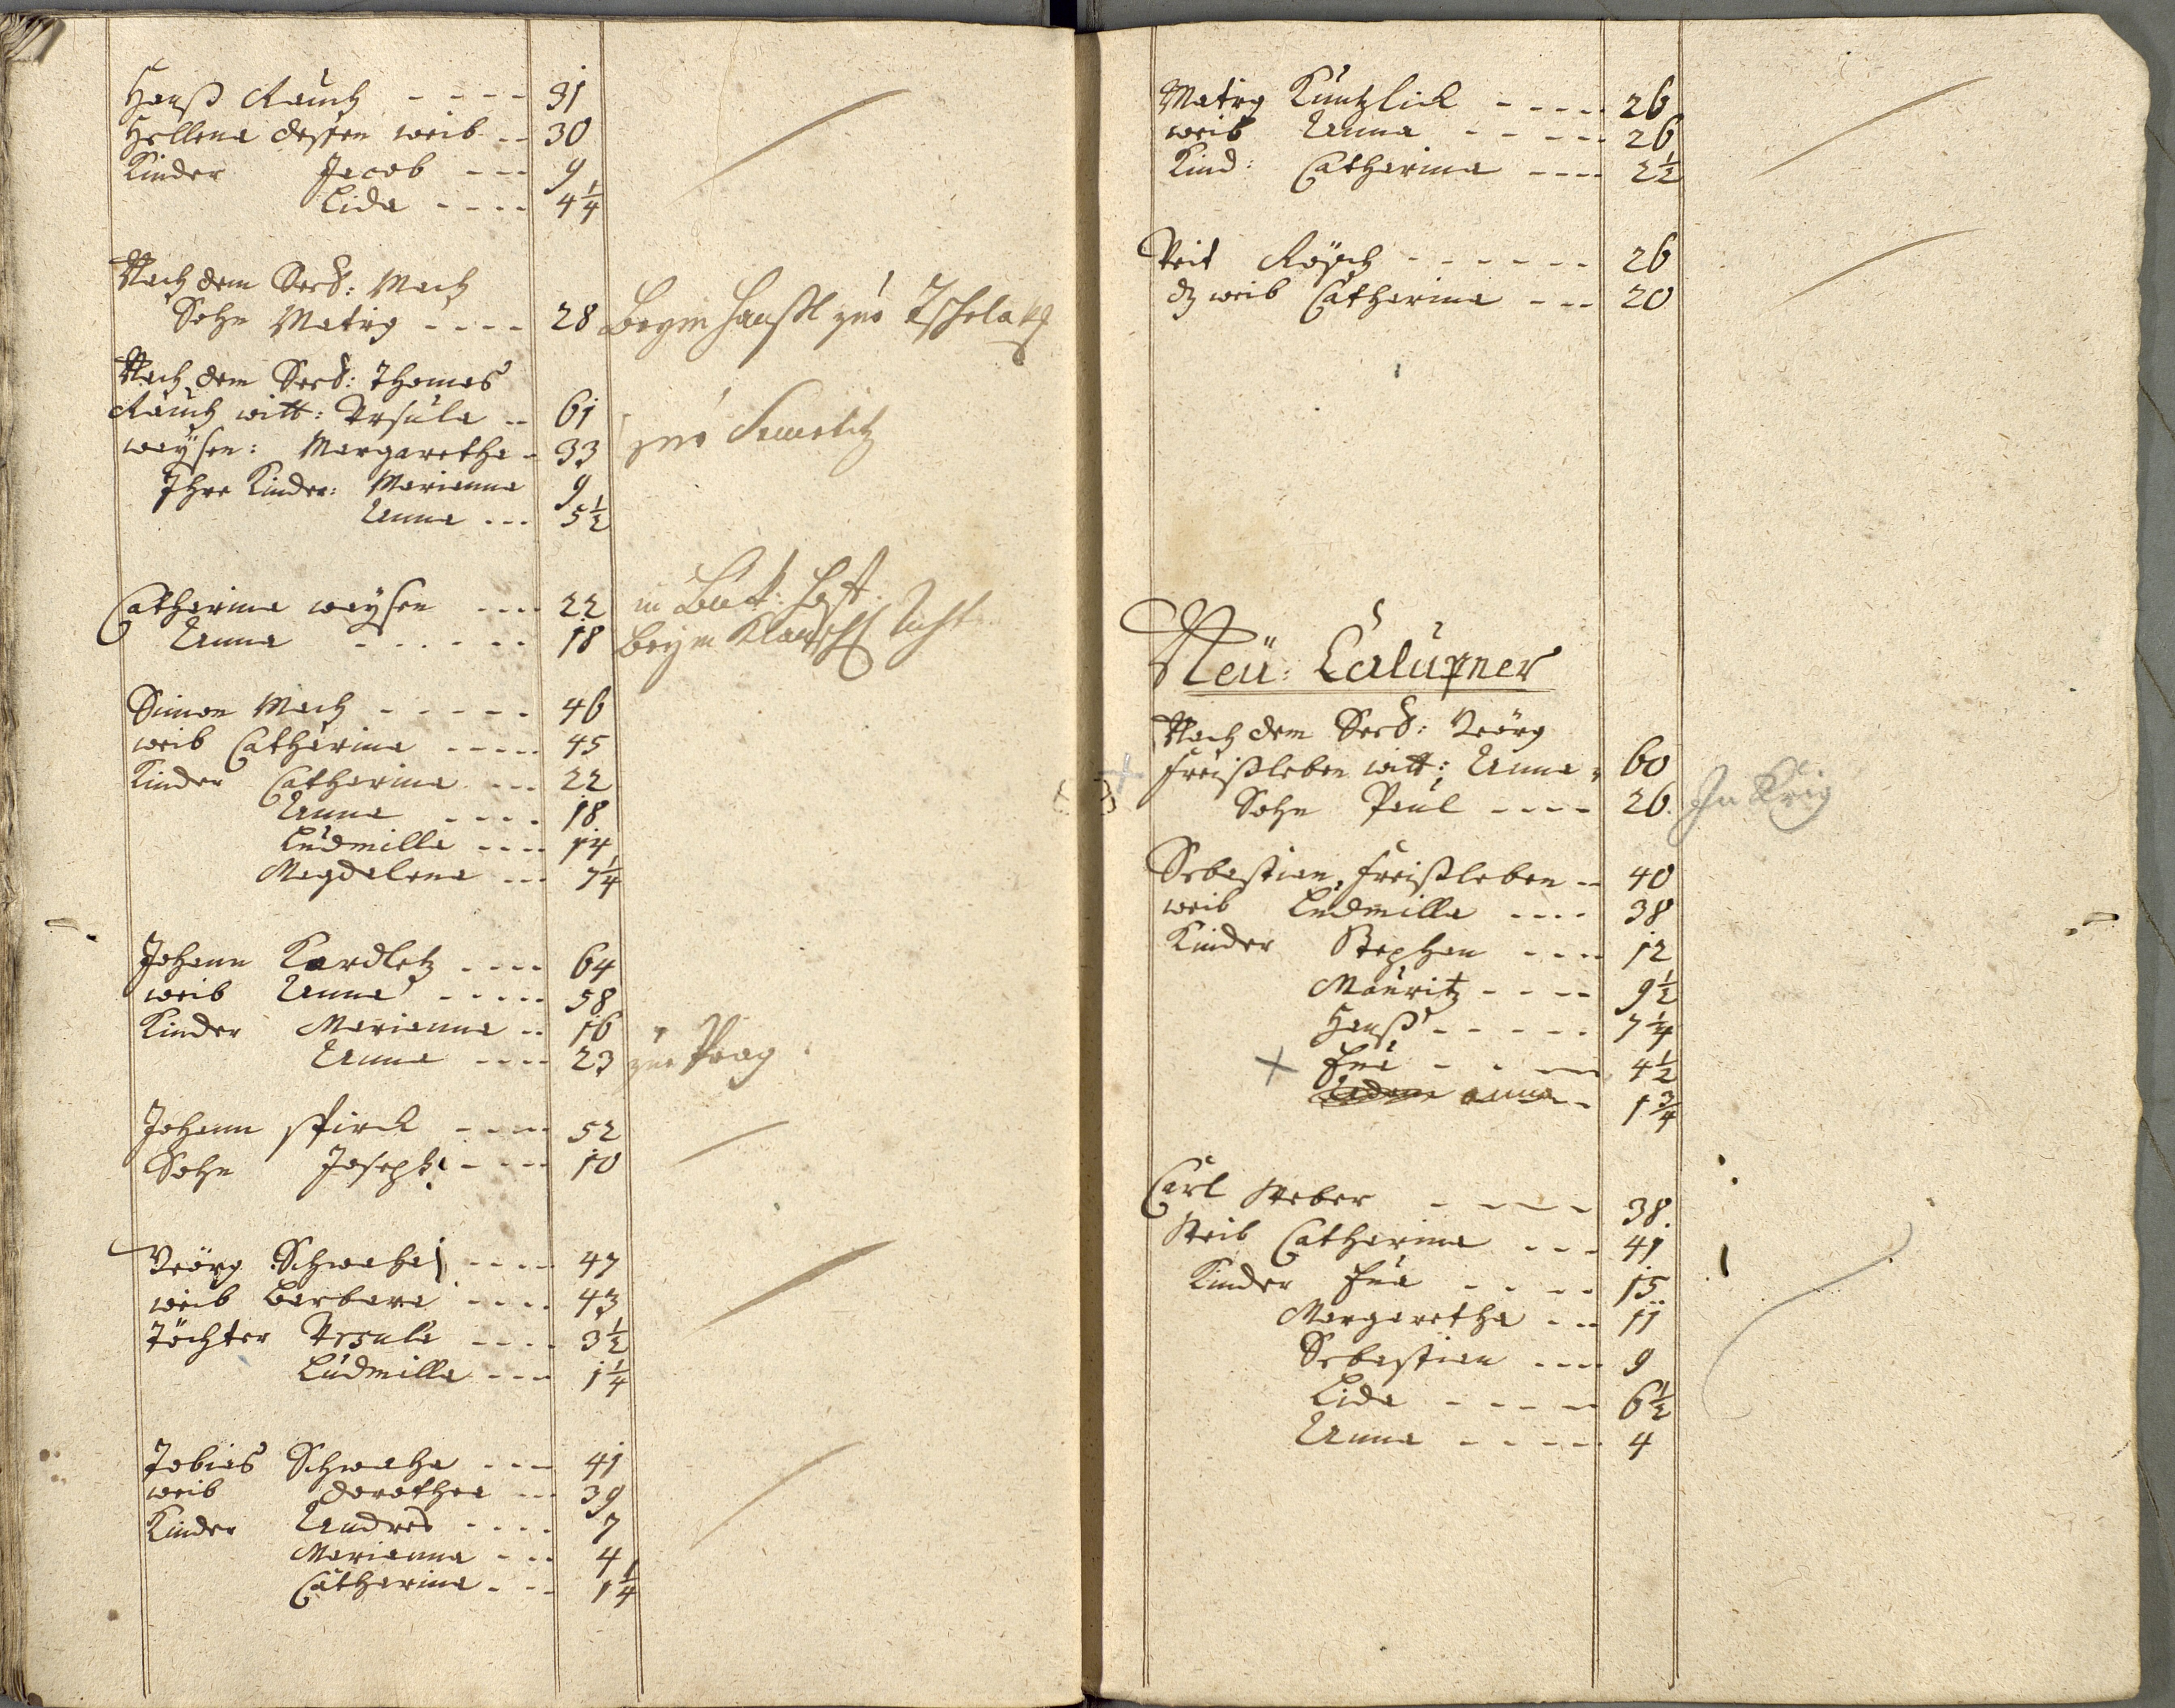 Hanß Rauch - - - - 31
Hellena dessen weib - - 30
Kinder Jacob - - - 9
Lida - - - - 4 1/4
Nach dem Verst: Mach
Sohn Matieg - - - - 28 Beym Hanßl zur
Nach dem Verst: Thomas
Rauch witt: Ursula - - 61
waysen: Margaretha - 33 zue
Ihre Kinder: Marianna 9
Anna - - - 5 1/2
Catharina waysen - - - - 22 in
Anna - - - - - - 18 beym
Simon Mach - - - - - 46
weib Catharina - - - - - 45
Kinder Catharina - - - 22
Anna - - - - 18
Ludmilla - - - - 14
Magdalena - - - 7 1/4
Johann Kardletz - - - - 64
weib Anna - - - - - 58
Kinder Marianna - - 16
Anna - - - - 23 zue Prag
Johann Stirck - - - - 52
Sohn Joseph - - - - 10
Geörg Schwaha - - - - 47
weib Barbara - - - - 43
Töchter Ursula - - - - 3 1/2
Ludmilla - - - 1 1/4
Tobias Schwaha - - - 41
weib Dorothea - - 39
Kinder Andres - - - - 7
Marianna - - - 4
Catharina - - - 1 1/4
Matieg Kuntzlick - - - - 26
weib Anna - - - - - 26
Kind: Catharina - - - - 2 1/2
Veit Rösch - - - - - - 26
weib Catharina - - - 20
Neü: Calupner
Nach dem Verst: Geörg
Freißleben witt: Anna 60
Sohn Paul - - - - 26 In Krig
Sebastian Freißleben - - 40
weib Ludmilla - - - - 38
Kinder Stephan - - - - 12
Mauritz - - - - 9 1/2
Hanß - - - - - 7 1/4
x Eva - - - 4 1/2
Anna - - 1 3/4
Carl Weber - - - - 38.
Weib Catharina - - - 41
Kinder Eva - - - - 15
Margaretha - - - 11
Sebastian - - - - 9
Lida - - - - - 6 1/2
Anna - - - - - 4